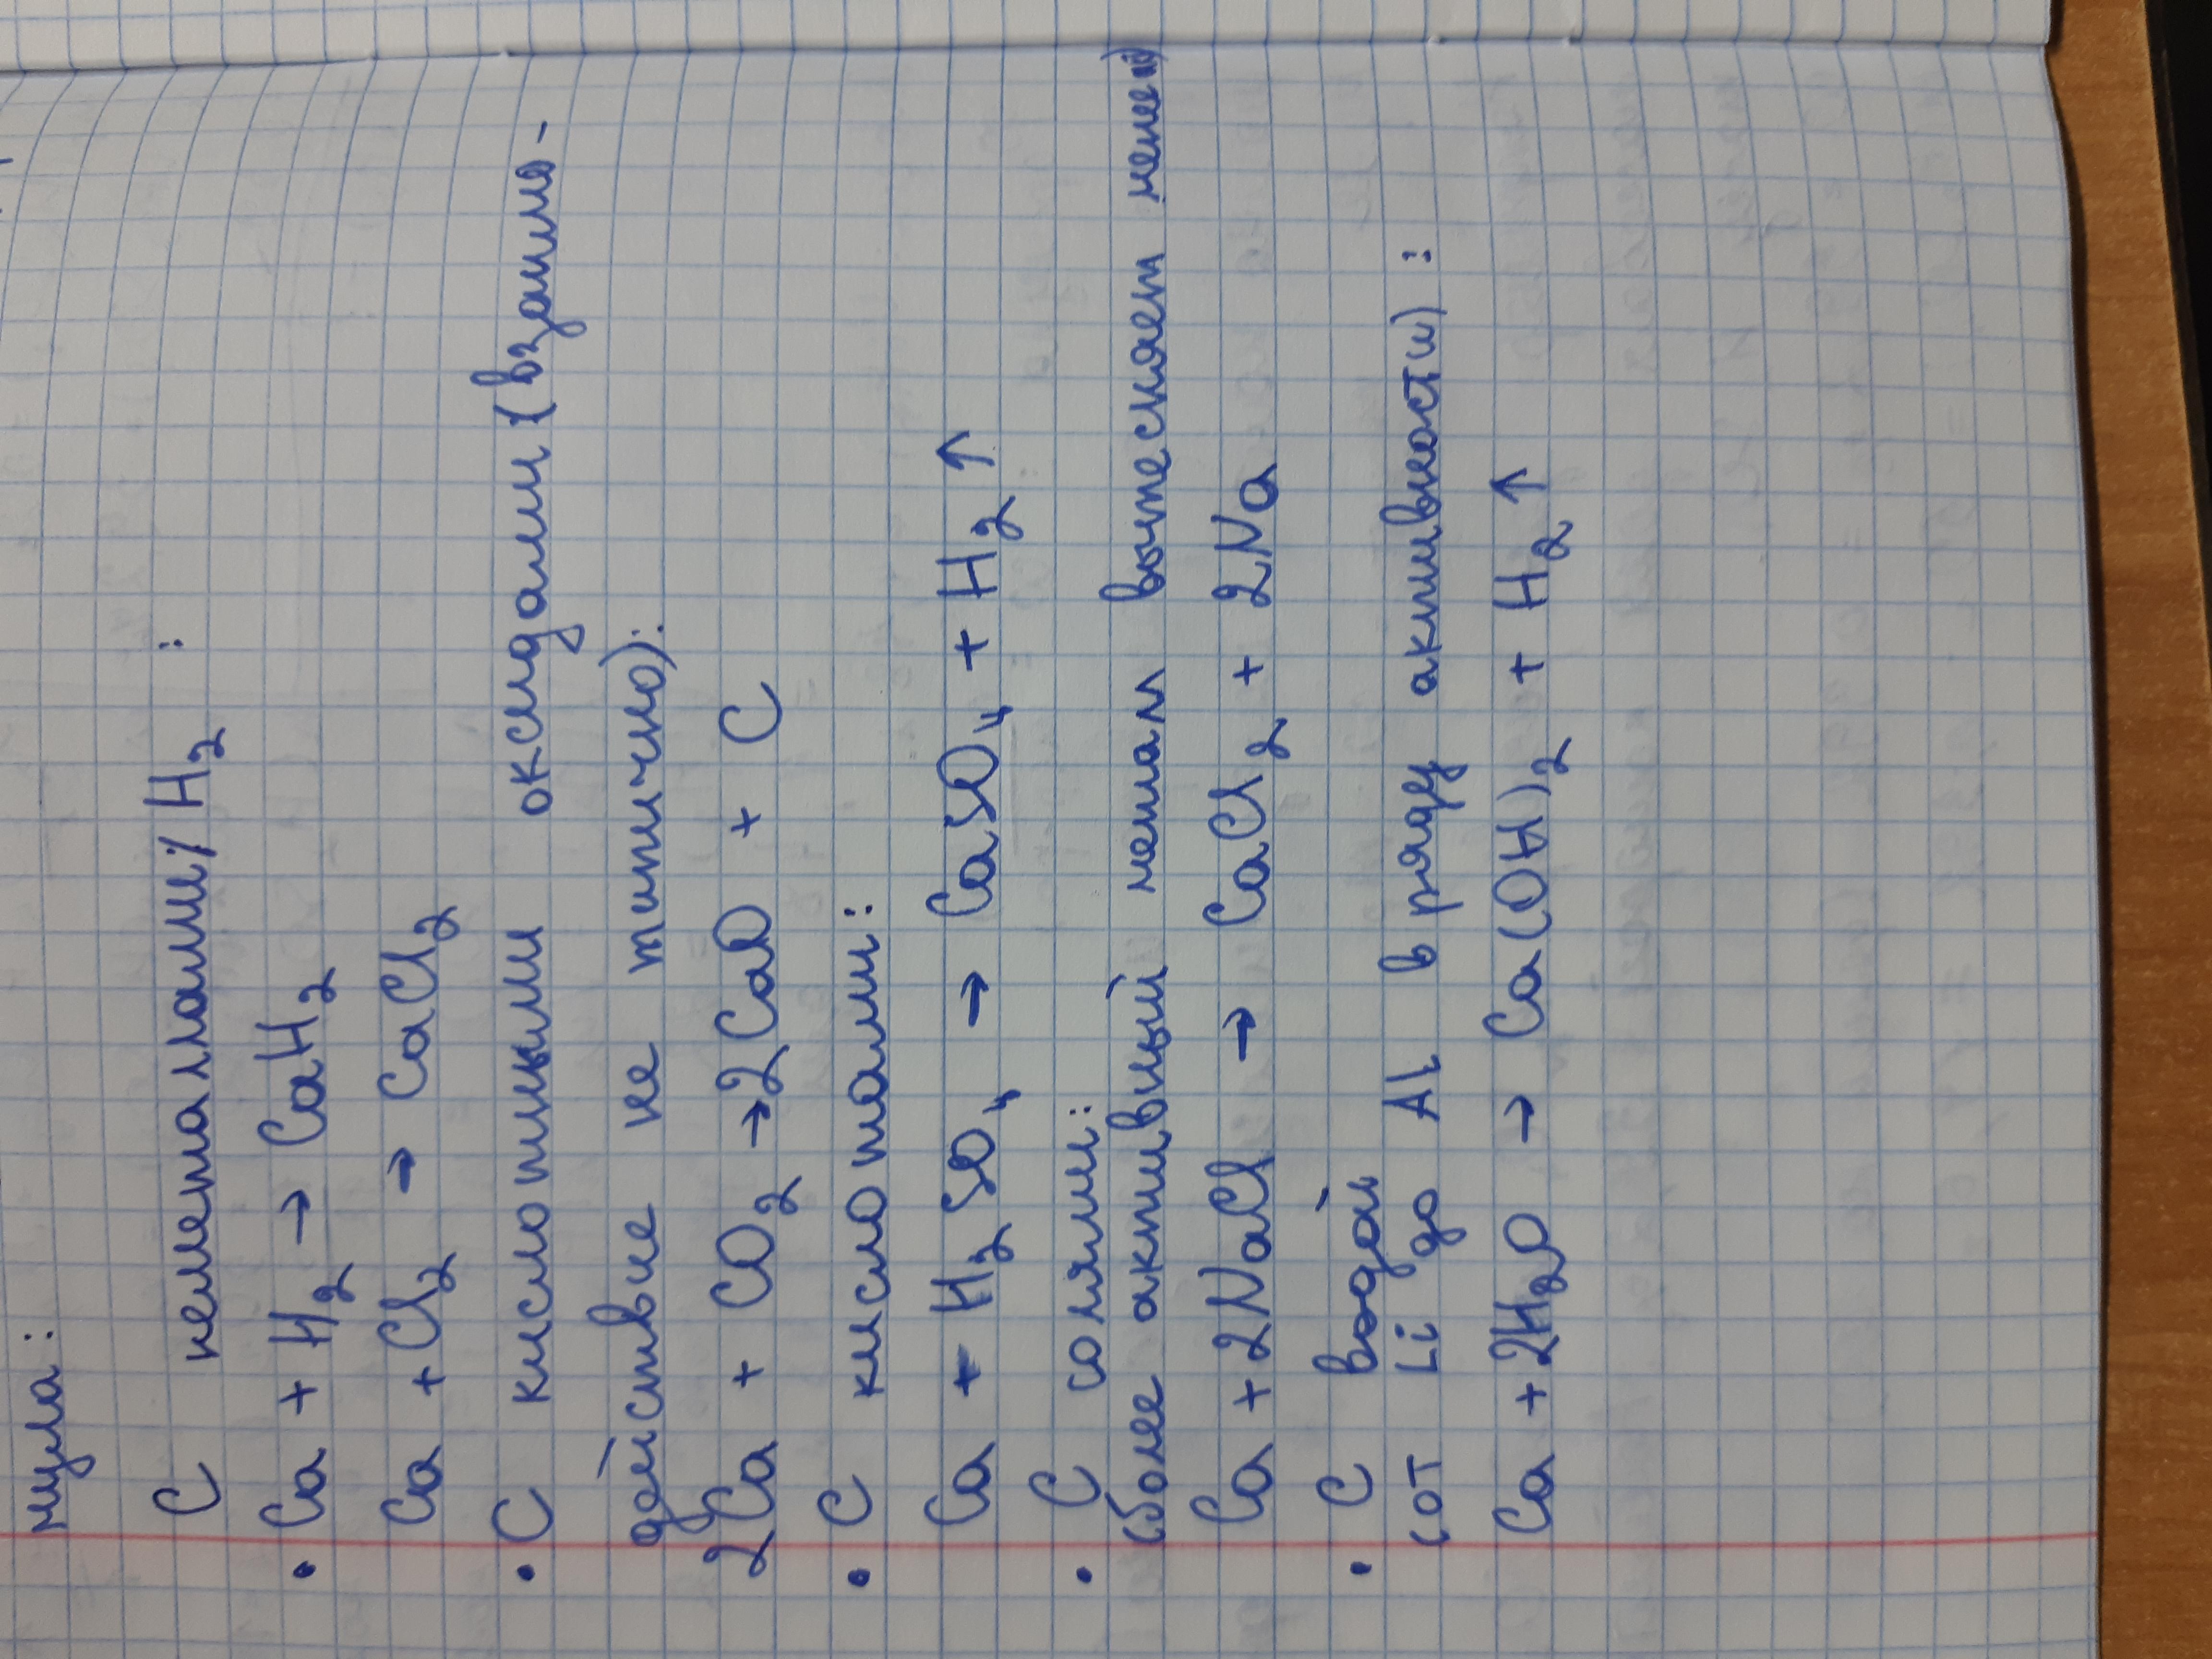 мула:
С неметаллами/H2 :
• Ca + H2 → CaH2
Ca + Cl2 → CaCl2
• С кислотными оксидами (взаимо-
действие не типично):
2Ca + CO2 → 2CaO + C
• С кислотами:
Ca + H2SO4 → CaSO4 + H2↑
• С солями:
(более активный металл вытесняет менее а)
Ca + 2NaCl → CaCl2 + 2Na
• С водой
(от Li до Al в ряду активности) :
Ca + 2H2O → Ca(OH)2 + H2↑